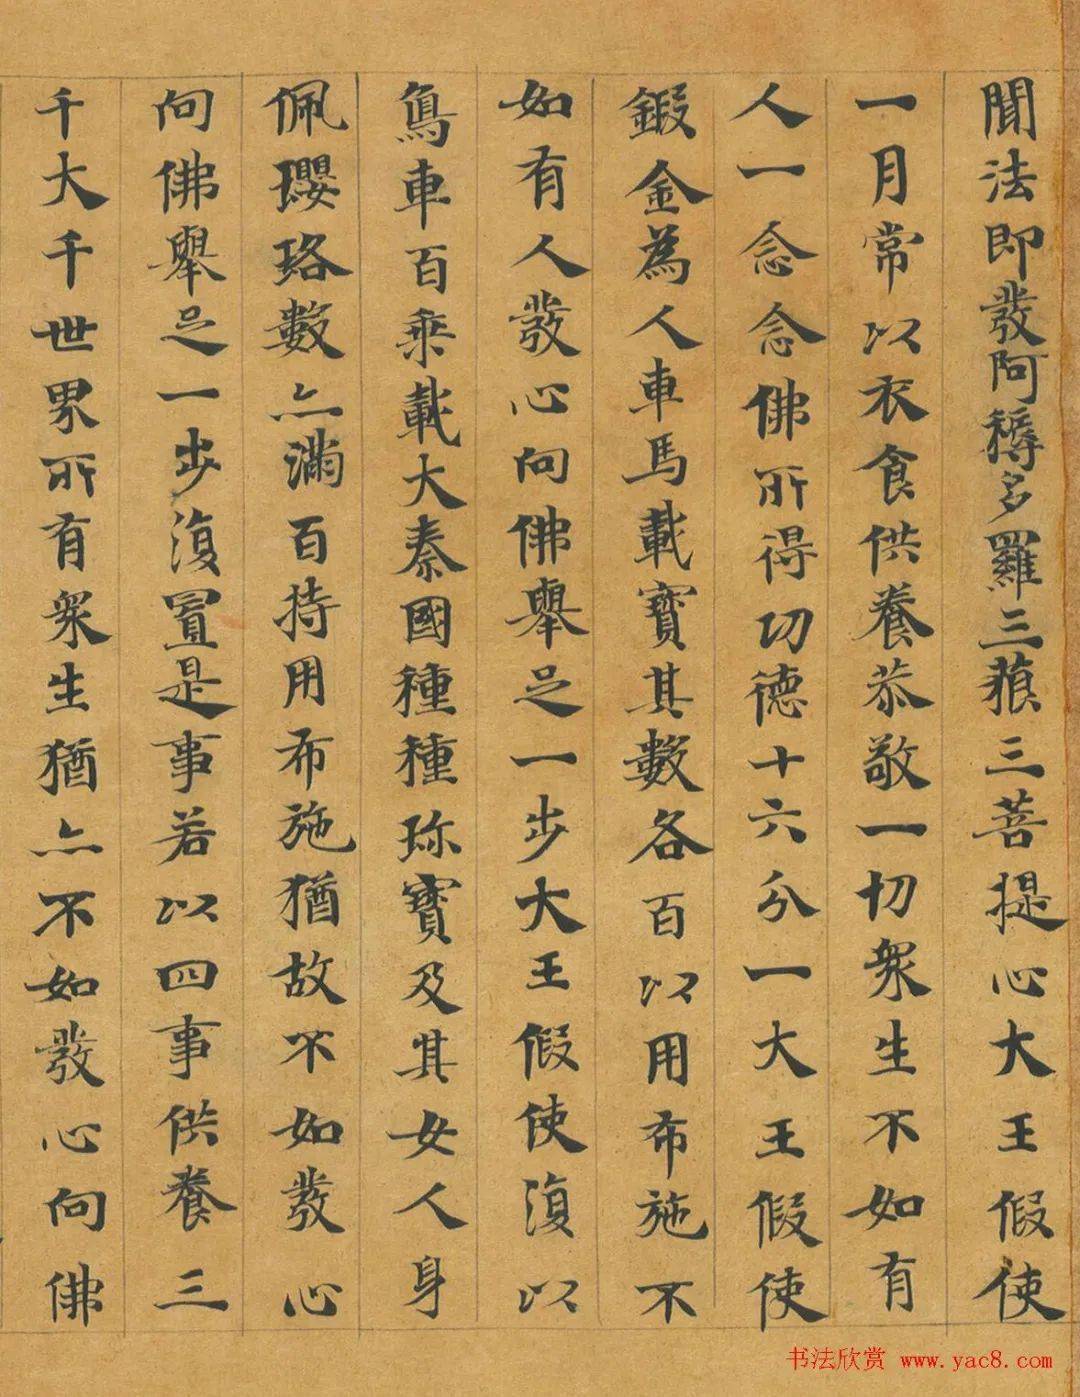 聞法即發阿耨多羅三藐三菩提心大王假使
一月常以衣食供養恭敬一切眾生不如有
人一念念佛所得功德十六分一大王假使
鍛金為人車馬載寶其數各百以用布施不
如有人發心向佛舉足一步大王假使復以
象車百乘載大秦國種種珎寶及其女人身
佩瓔珞數亦滿百持用布施猶故不如發心
向佛舉足一步復置是事若以四事供養三
千大千世界所有眾生猶亦不如發心向佛
书法欣赏 www.yac8.com